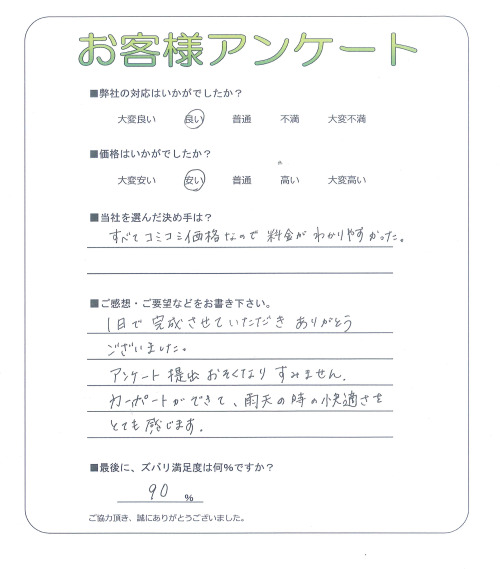 お客様アンケート
■弊社の対応はいかがでしたか？
大変良い 良い 普通 不満 大変不満
■価格はいかがでしたか？
大変安い 安い 普通 高い 大変高い
■当社を選んだ決め手は？
すべてコミコミ価格なので料金がわかりやすかった。
■ご感想・ご要望などをお書き下さい。
1日で完成させていただきありがとう
ございました。
アンケート提出おそくなりすみません.
カーポートができて、雨天の時の快適さを
とても感じます.
■最後に、ズバリ満足度は何%ですか？
90 %
ご協力頂き、誠にありがとうございました。